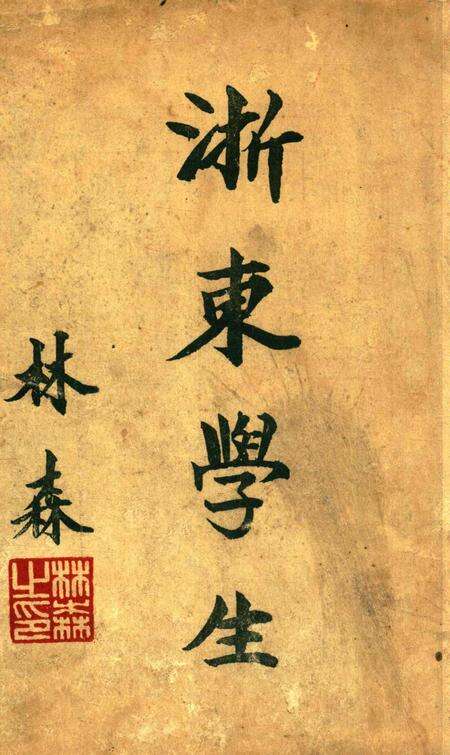 浙東學生
林森
林森之印